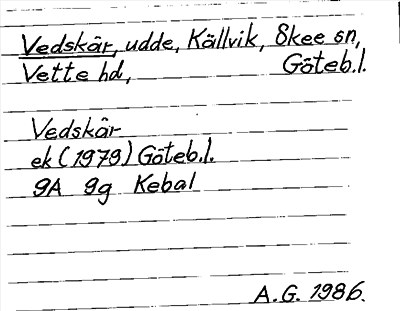 Vedskär, udde, Källvik, Skee sn,
Vette hd, Göteb.l.
Vedskär
ek (1979) Göteb.l.
9A 9g Kebal
A.G. 1986.